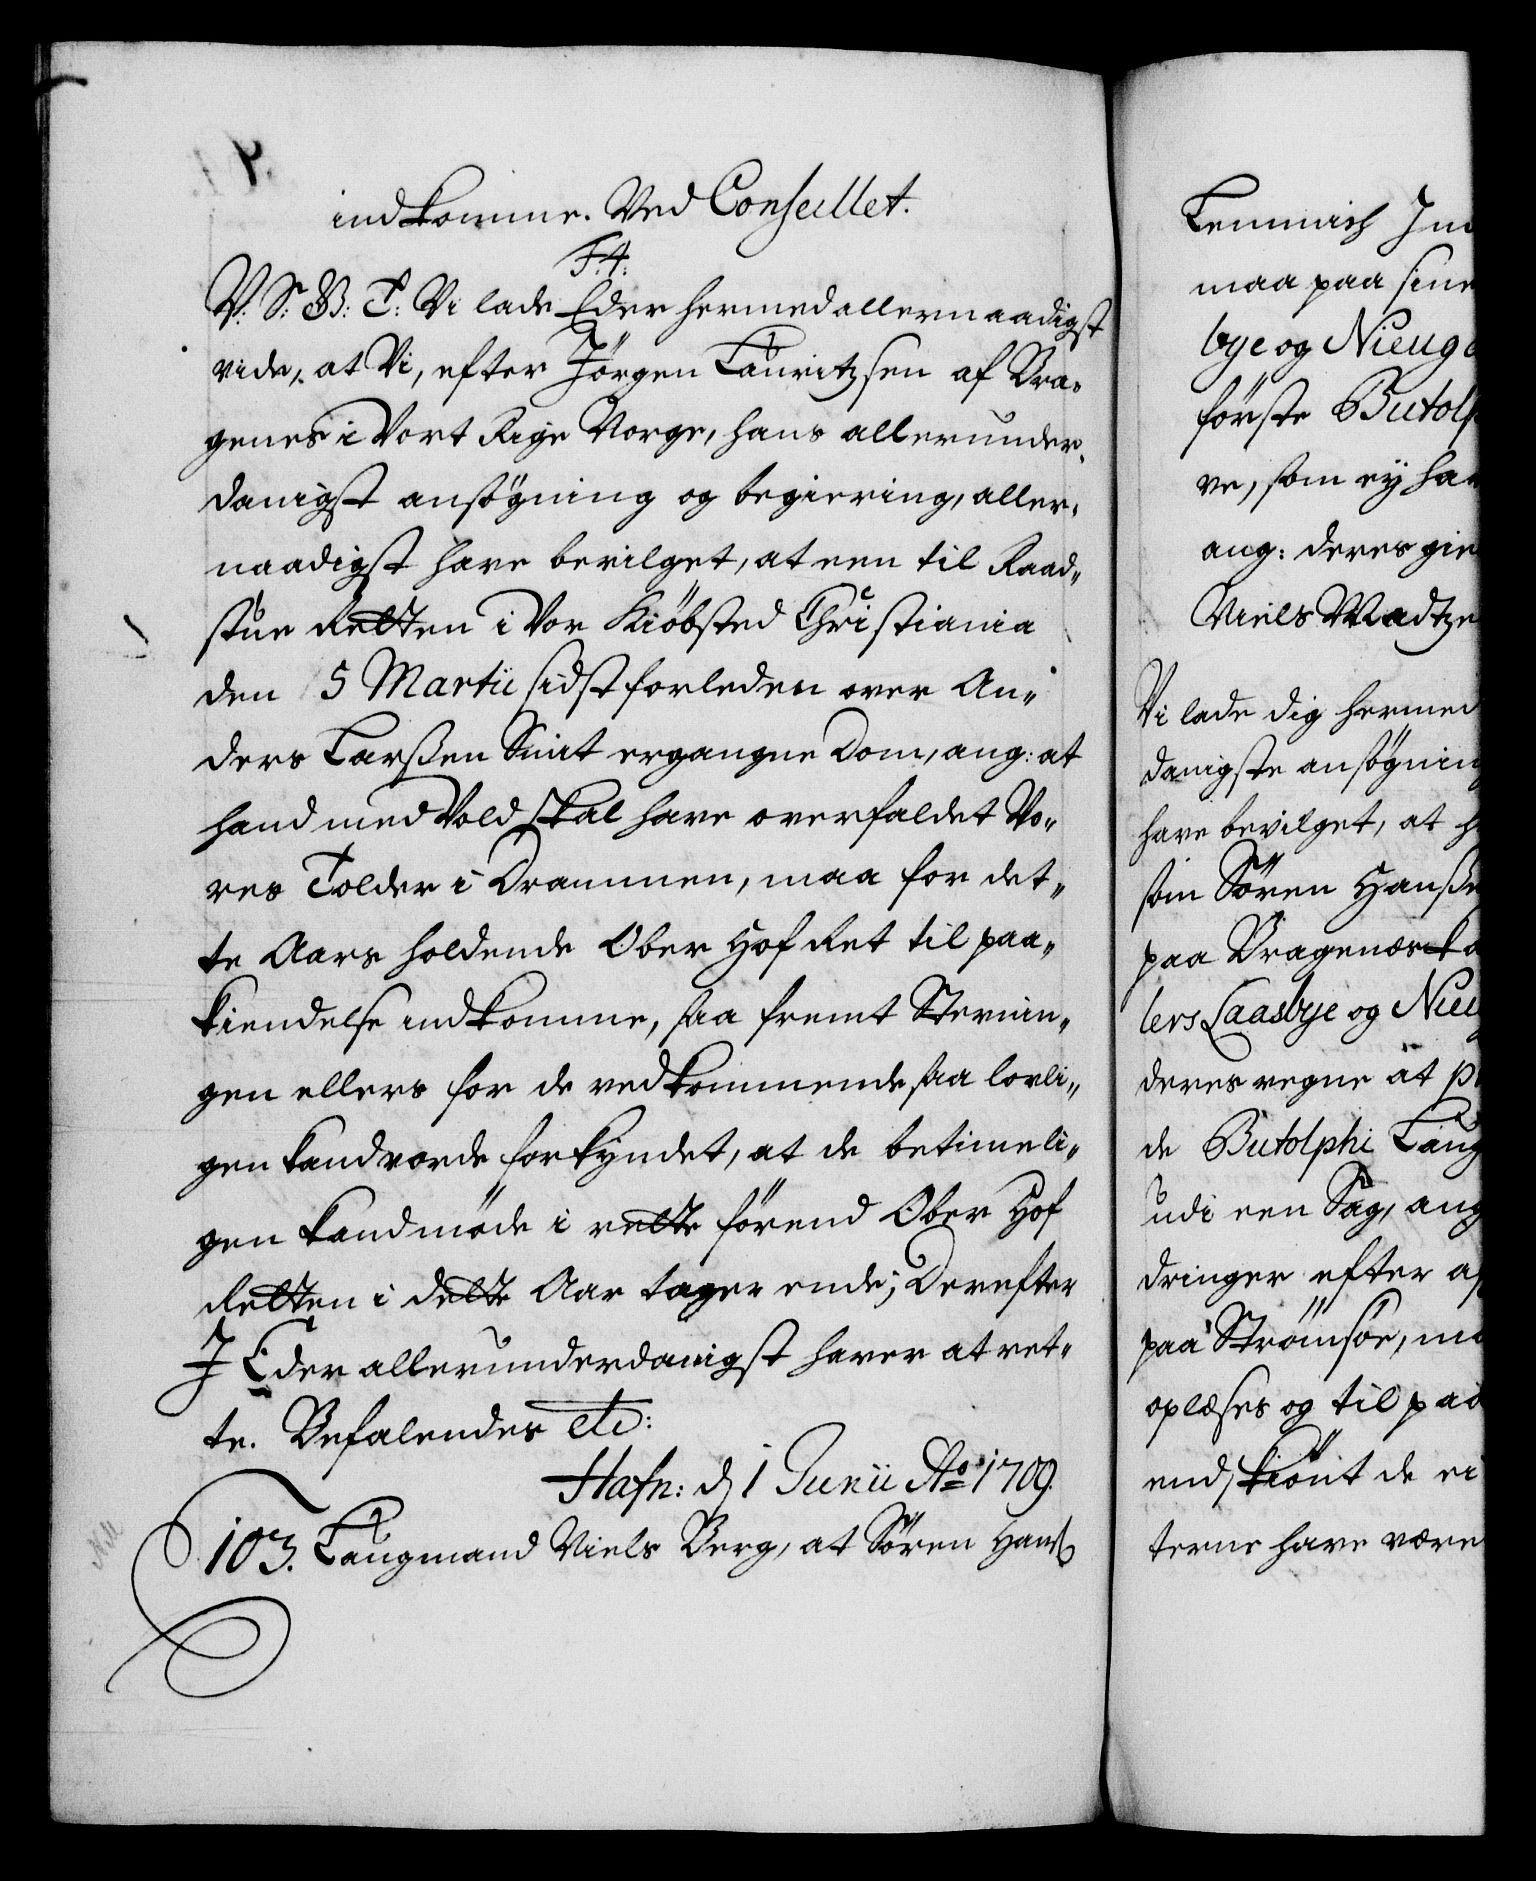 indkomme. Ved Conseillet.
F. 4.
V: S: B: T: Vi lade Eder hermed allernaadigst
vide, at Vi, efter Jörgen Lauritzsen af Bra„
genes i Vort Rige Norge, hans allerunder„
danigst ansögning og begiering, aller„
naadigst have bevilget, at een til Raad„
stue Retten i Vor Kiöbsted Christiania
den 5 Martii sidstforleden over An„
ders Larßen Smit ergangne Dom, ang: at
hand med Vold skal have overfaldet Vo„
res Tolder i Drammen, maa for det„
te Aars holdende Ober Hof Ret til paa„
kiendelse indkomme, saa fremt Stevnin„
gen ellers for de vedkommende saa lovli„
gen kand vorde forkyndet, at de betimeli„
gen kand möde i rette förend Ober Hof
Retten i dette Aar tager ende; Derefter
I Eder allerunderdanigst haver at ret„
te. Befalendes etc:
Hafn: d 1 Junii Ao 1709.
103. Laugmand Niels Berg, at Sören Hanß
Lemmich Ind
maa paa sine
bye og Nieug
förste Butolp
ve, som ey hav
ang: deres gie
Niels Madtze
Vi lade dig hermed
danigste ansögning
have bevilget, at h
som Sören Hanße
paa Bragenæs
lers Laasbye og Nieu
deres vegne at p
de Butolphi Laug
udi een Sag, ang
dringer efter af
paa Strömsöe, ma
oplæses og til paa
endskiönt de ei
terne have være